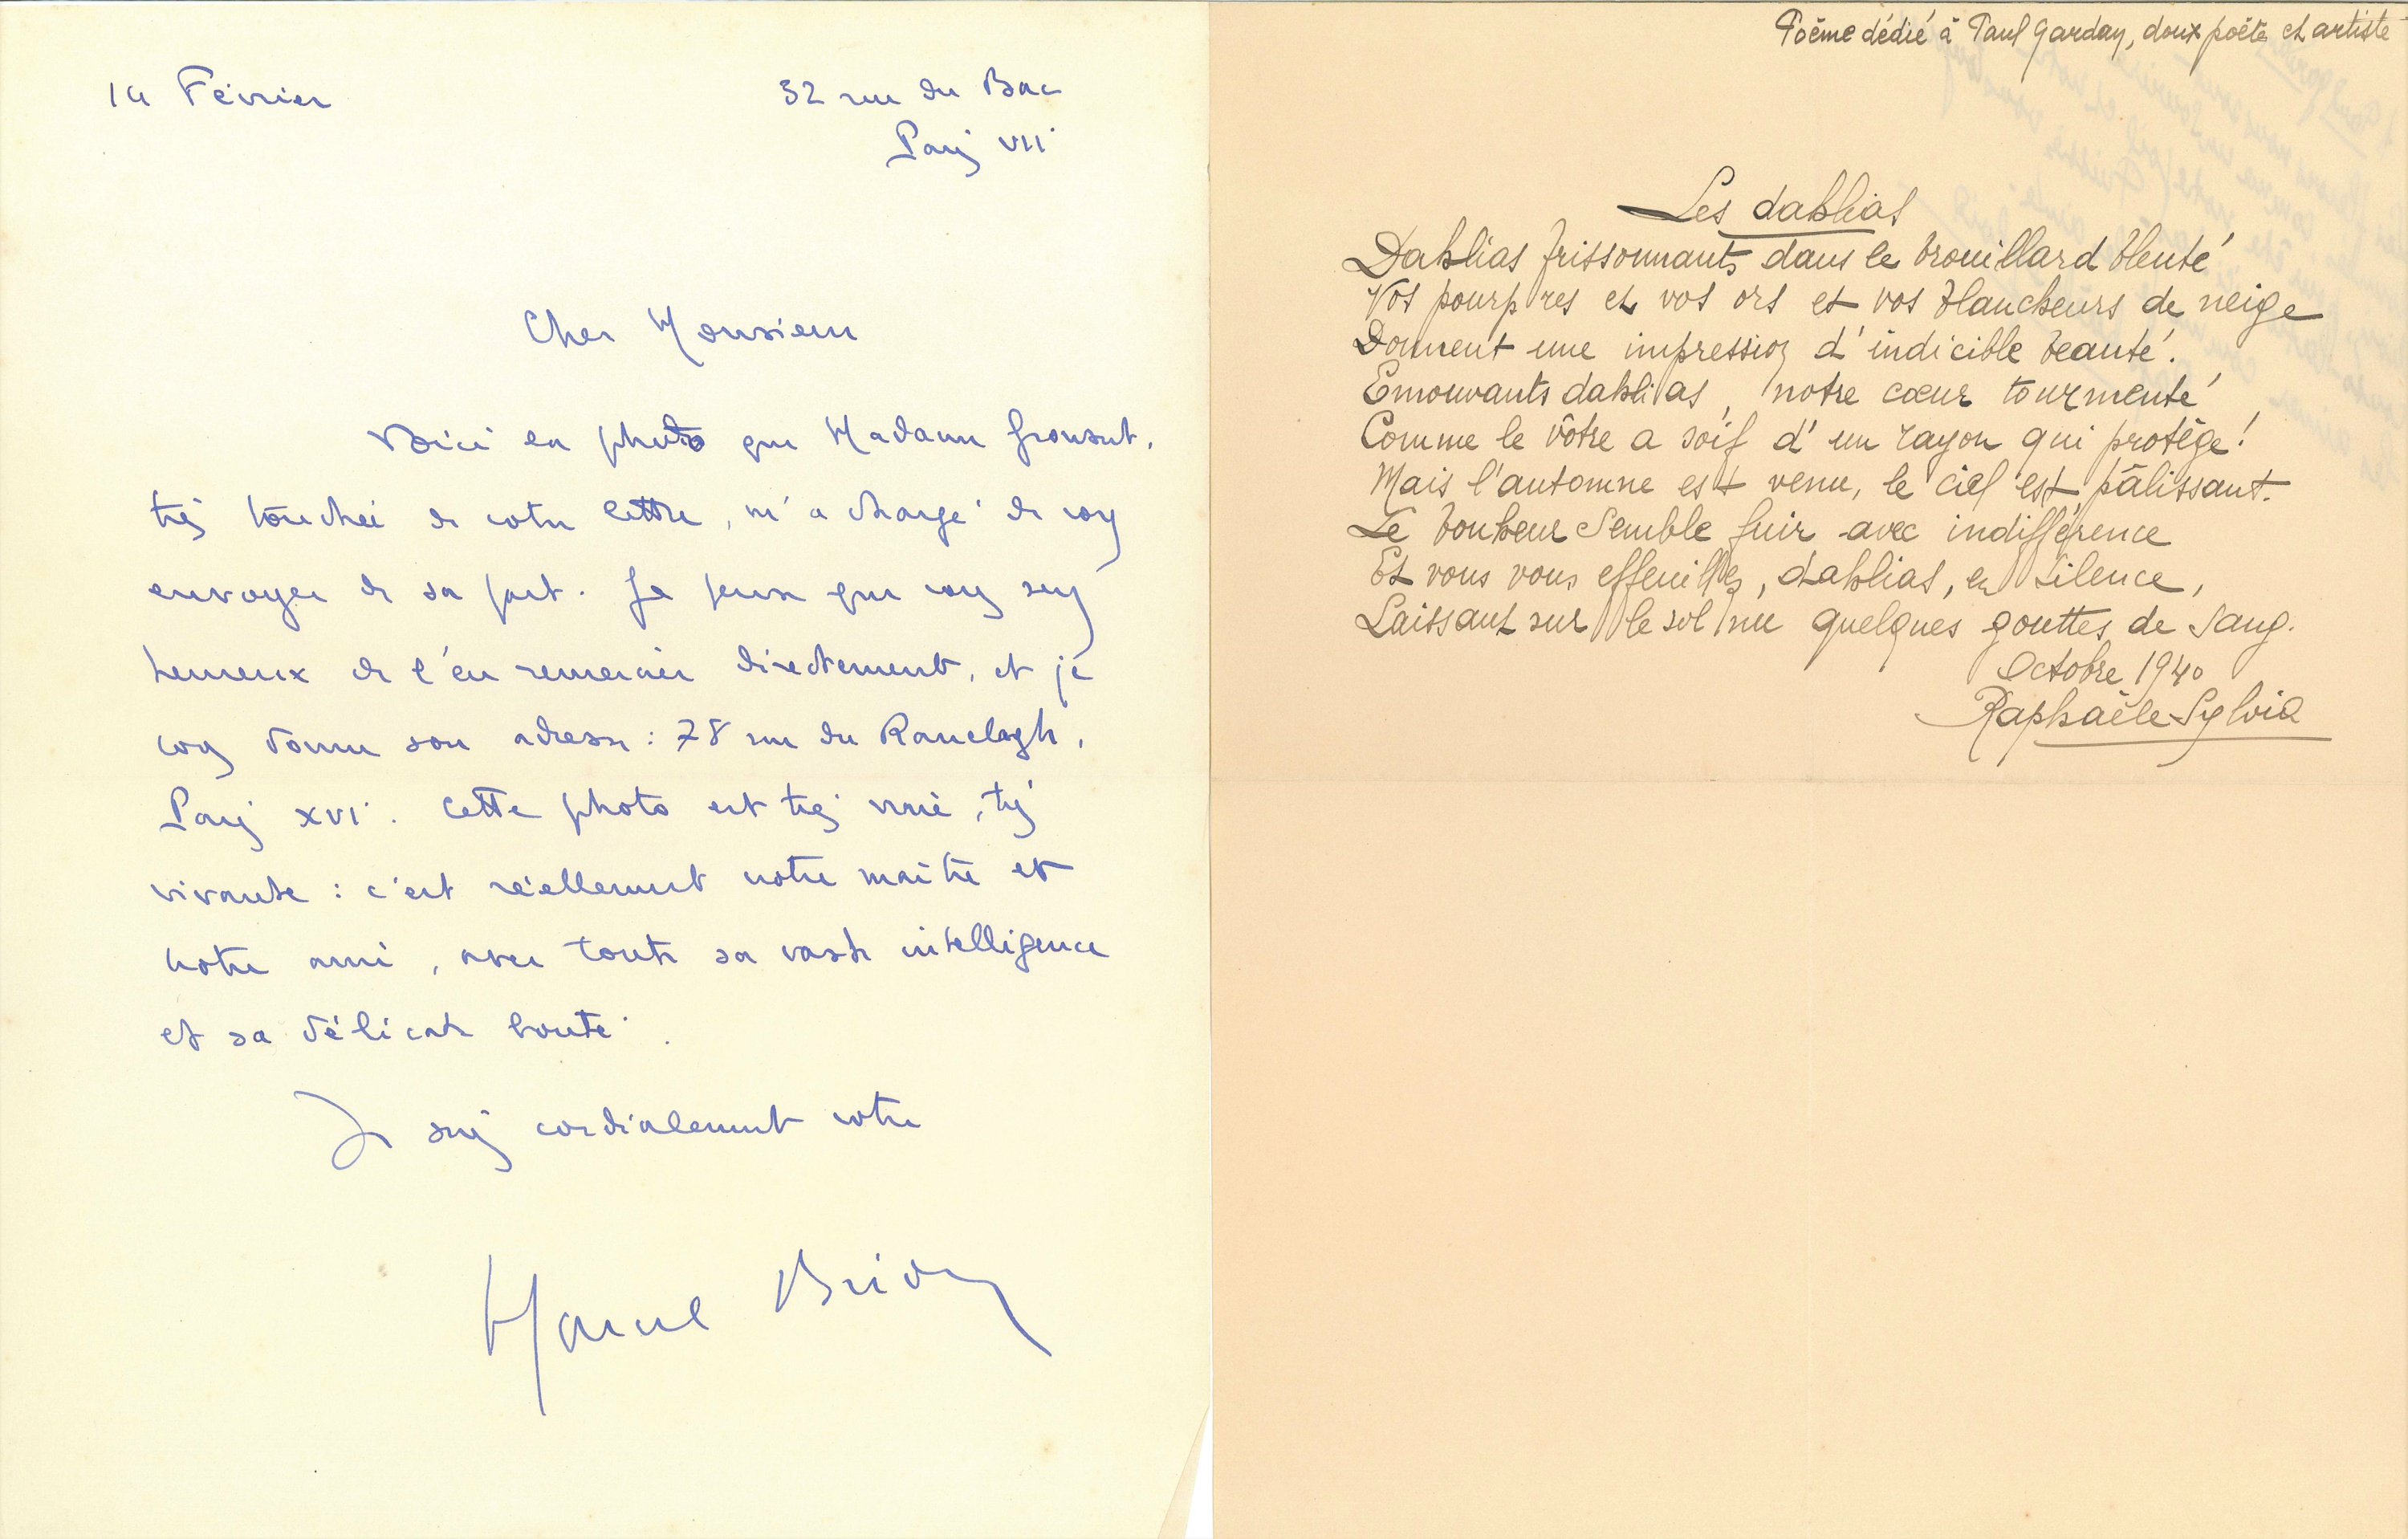 14 Février
32 rue du Bac
Paris VII
Cher Monsieur
Voici la photo que Madame Grousset,
très touchée de votre lettre, m'a chargé de vous
envoyer de sa part. Je pense que vous serez
heureux de l'en remercier directement, et je
vous donne son adresse : 78 rue du Ranelagh,
Paris XVI. Cette photo est très vraie, très
vivante : c'est réellement notre maître et
notre ami, avec toute sa vaste intelligence
et sa délicate bonté.
Je suis cordialement votre
Marcel Brion
Poème dédié à Paul Garday, doux poète et artiste
Les dahlias
Dahlias frissonnants dans le brouillard bleuté
Vos pourpres et vos ors et vos blancheurs de neige
Donnent une impression d'indicible beauté.
Emouvants dahlias, notre cœur tourmenté
Comme le vôtre a soif d'un rayon qui protège !
Mais l'automne est venu, le ciel est pâlissant.
Le bonheur semble fuir avec indifférence
Et vous vous effeuillez, dahlias, en silence,
Laissant sur le sol nu quelques gouttes de sang.
Octobre 1940
Raphaële Sylvia